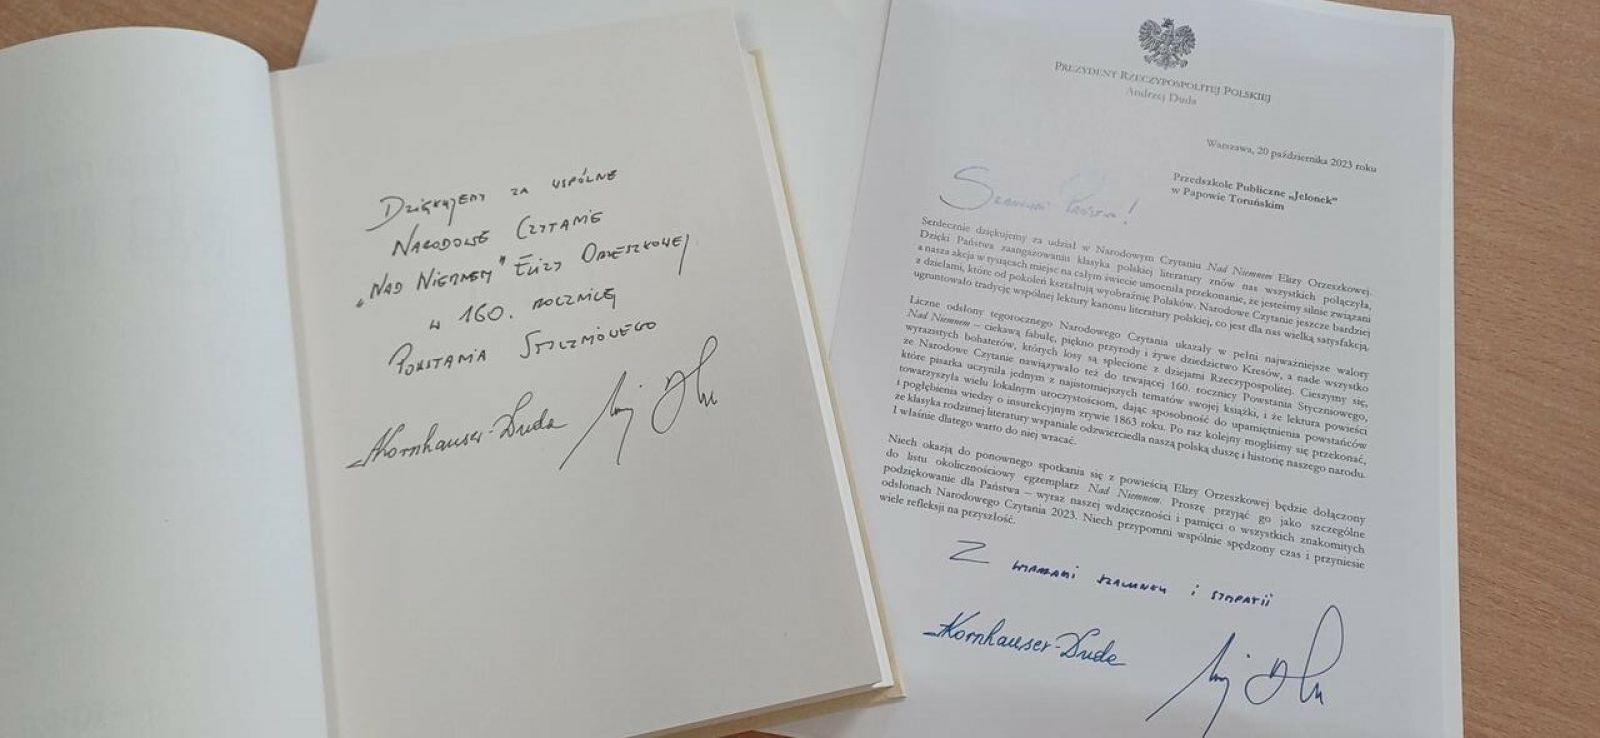 Dziękujemy za wspólne
Narodowe Czytanie
„Nad Niemnem” Elizy Orzeszkowej
w 160. rocznicę
Powstania Styczniowego
AKornhauser-Duda
PREZYDENT RZECZYPOSPOLITEJ POLSKIEJ
Andrzej Duda
Warszawa, 20 października 2023 roku
Przedszkole Publiczne „Jelonek”
w Papowie Toruńskim
Szanowni Państwo!
Serdecznie dziękujemy za udział w Narodowym Czytaniu Nad Niemnem Elizy Orzeszkowej.
Dzięki Państwa zaangażowaniu klasyka polskiej literatury znów nas wszystkich połączyła,
a nasza akcja w tysiącach miejsc na całym świecie umocniła przekonanie, że jesteśmy silnie związani
z dziełami, które od pokoleń kształtują wyobraźnię Polaków. Narodowe Czytanie jeszcze bardziej
ugruntowało tradycję wspólnej lektury kanonu literatury polskiej, co jest dla nas wielką satysfakcją.
Liczne odsłony tegorocznego Narodowego Czytania ukazały w pełni najważniejsze walory
Nad Niemnem – ciekawą fabułę, piękno przyrody i żywe dziedzictwo Kresów, a nade wszystko
wyrazistych bohaterów, których losy są splecione z dziejami Rzeczypospolitej. Cieszymy się,
że Narodowe Czytanie nawiązywało też do trwającej 160. rocznicy Powstania Styczniowego,
które pisarka uczyniła jednym z najistotniejszych tematów swojej książki, i że lektura powieści
towarzyszyła wielu lokalnym uroczystościom, dając sposobność do upamiętnienia powstańców
i pogłębienia wiedzy o insurekcyjnym zrywie 1863 roku. Po raz kolejny mogliśmy się przekonać,
że klasyka rodzimej literatury wspaniale odzwierciedla naszą polską duszę i historię naszego narodu.
I właśnie dlatego warto do niej wracać.
Niech okazją do ponownego spotkania się z powieścią Elizy Orzeszkowej będzie dołączony
do listu okolicznościowy egzemplarz Nad Niemnem. Proszę przyjąć go jako szczególne
podziękowanie dla Państwa – wyraz naszej wdzięczności i pamięci o wszystkich znakomitych
odsłonach Narodowego Czytania 2023. Niech przypomni wspólnie spędzony czas i przyniesie
wiele refleksji na przyszłość.
Z wyrazami szacunku i sympatii
AKornhauser-Duda